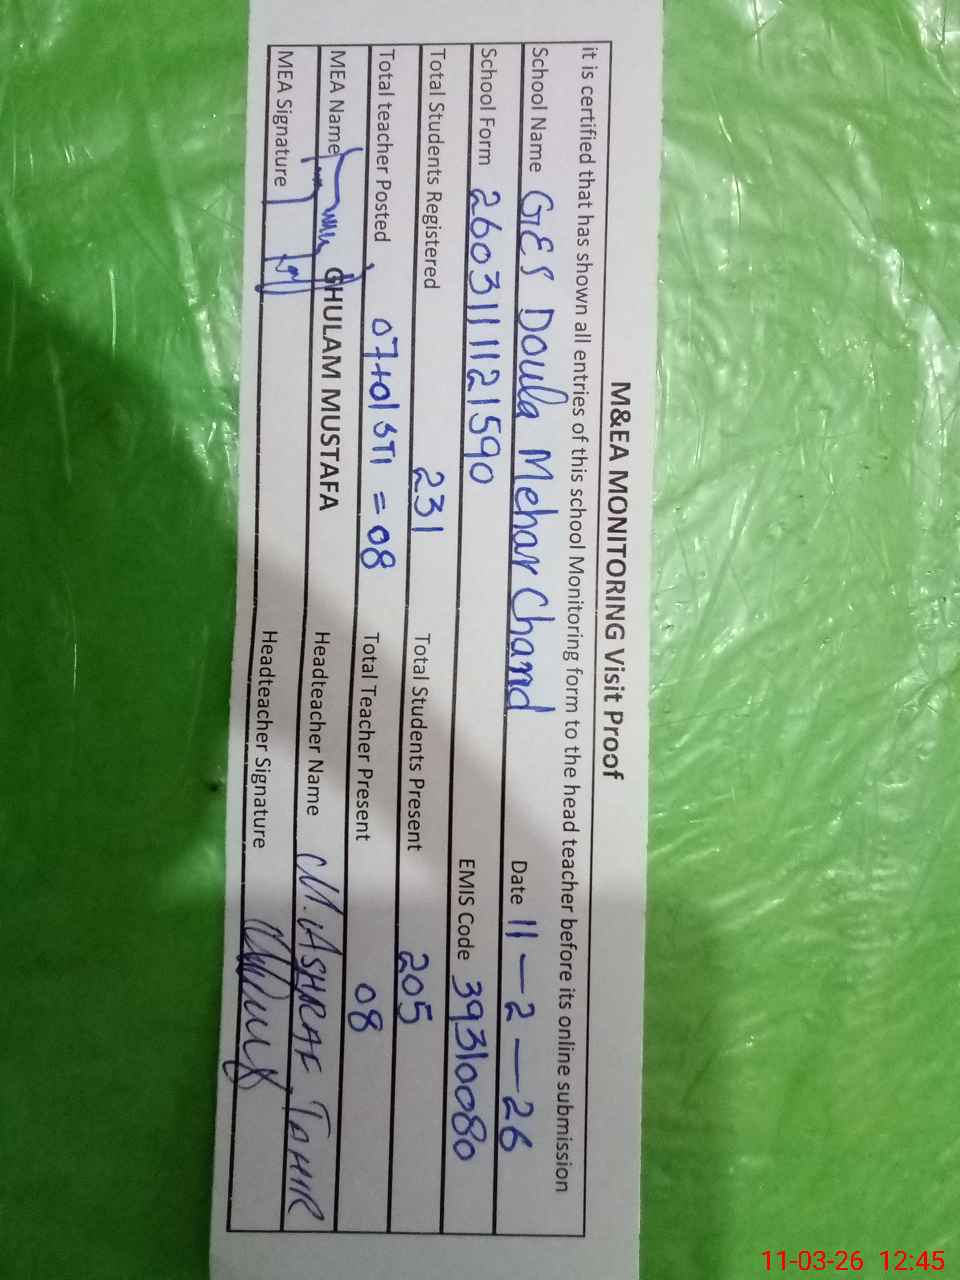 M&EA MONITORING Visit Proof
it is certified that has shown all entries of this school Monitoring form to the head teacher before its online submission
School Name GES Doula Mehar Chand Date 11-2-26
School Form 2603111121590 EMIS Code 39310080
Total Students Registered 231 Total Students Present 205
Total teacher Posted 07+01 STI = 08 Total Teacher Present 08
MEA Name GHULAM MUSTAFA Headteacher Name M. ASHRAF TAHIR
MEA Signature Headteacher Signature
11-03-26 12:45